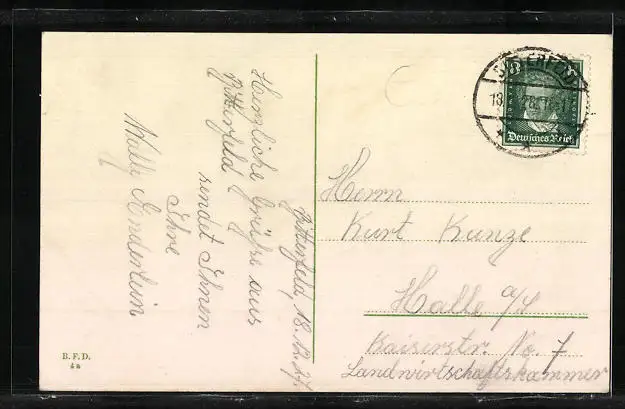 Bitterfeld, 18.12.27.
Herzliche Grüße aus
Bitterfeld
sendet Ihnen
Ihre
Wally Enderlein
B. F. D.
Herrn
Kurt Kunze
Halle a/S
Kaiserstr. No. 7
Landwirtschaftskammer
8
Deutsches Reich